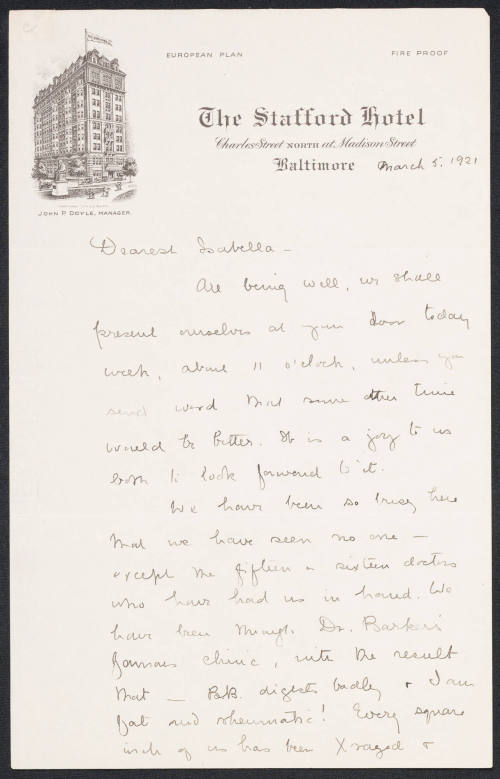 EUROPEAN PLAN
FIRE PROOF
The Stafford Hotel
Charles Street NORTH at Madison Street
Baltimore
March 5. 1921
JOHN P. DOYLE, MANAGER.
Dearest Isabella –
All being well, we shall
present ourselves at your door today
week, about 11 o'clock, unless you
send word that some other time
would be better. It is a joy to us
both to look forward to it.
We have been so busy here
that we have seen no one –
except the fifteen or sixteen doctors
who have had us in hand. We
have been through Dr. Barker's
famous clinic, with the result
that – B.B. digests badly & I am
fat and rheumatic! Every square
inch of us has been Xrayed &